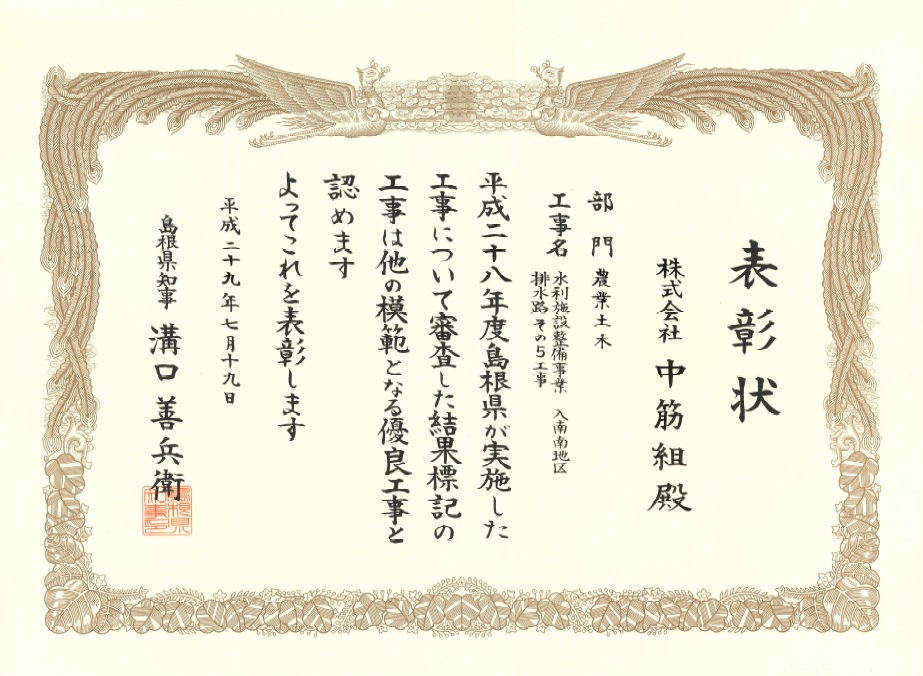 表彰状
株式会社 中筋組殿
部門 農業土木
工事名 水利施設整備事業 入南南地区
排水路その5工事
平成二十八年度島根県が実施した
工事について審査した結果標記の
工事は他の模範となる優良工事と
認めます
よってこれを表彰します
平成二十九年七月十九日
島根県知事 溝口善兵衛
島根県
知事之印